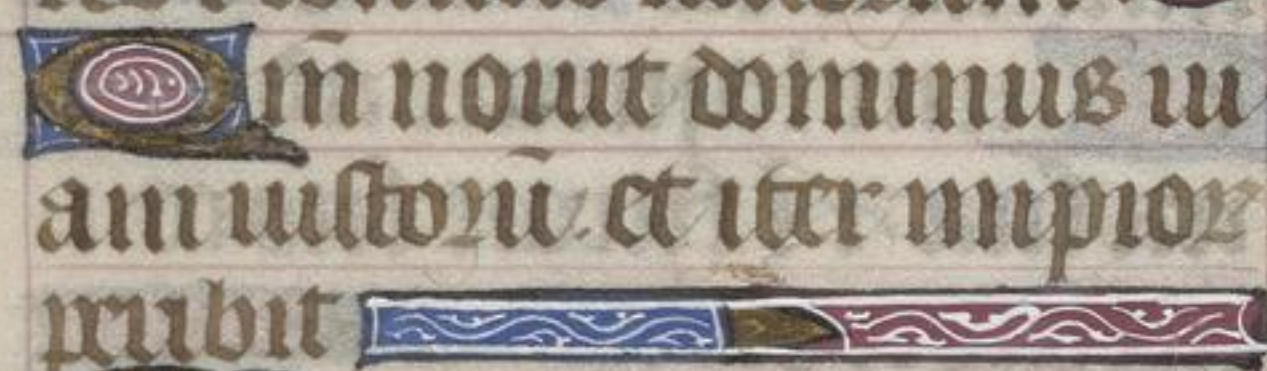 Qm̄ nouit dominus ui
am iustorū. et iter impioꝝ
peribit